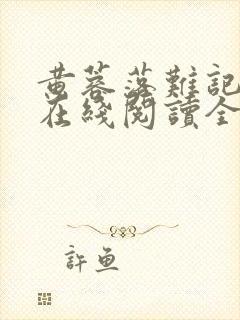 黄蓉落難記
在綫閱讀全
許魚